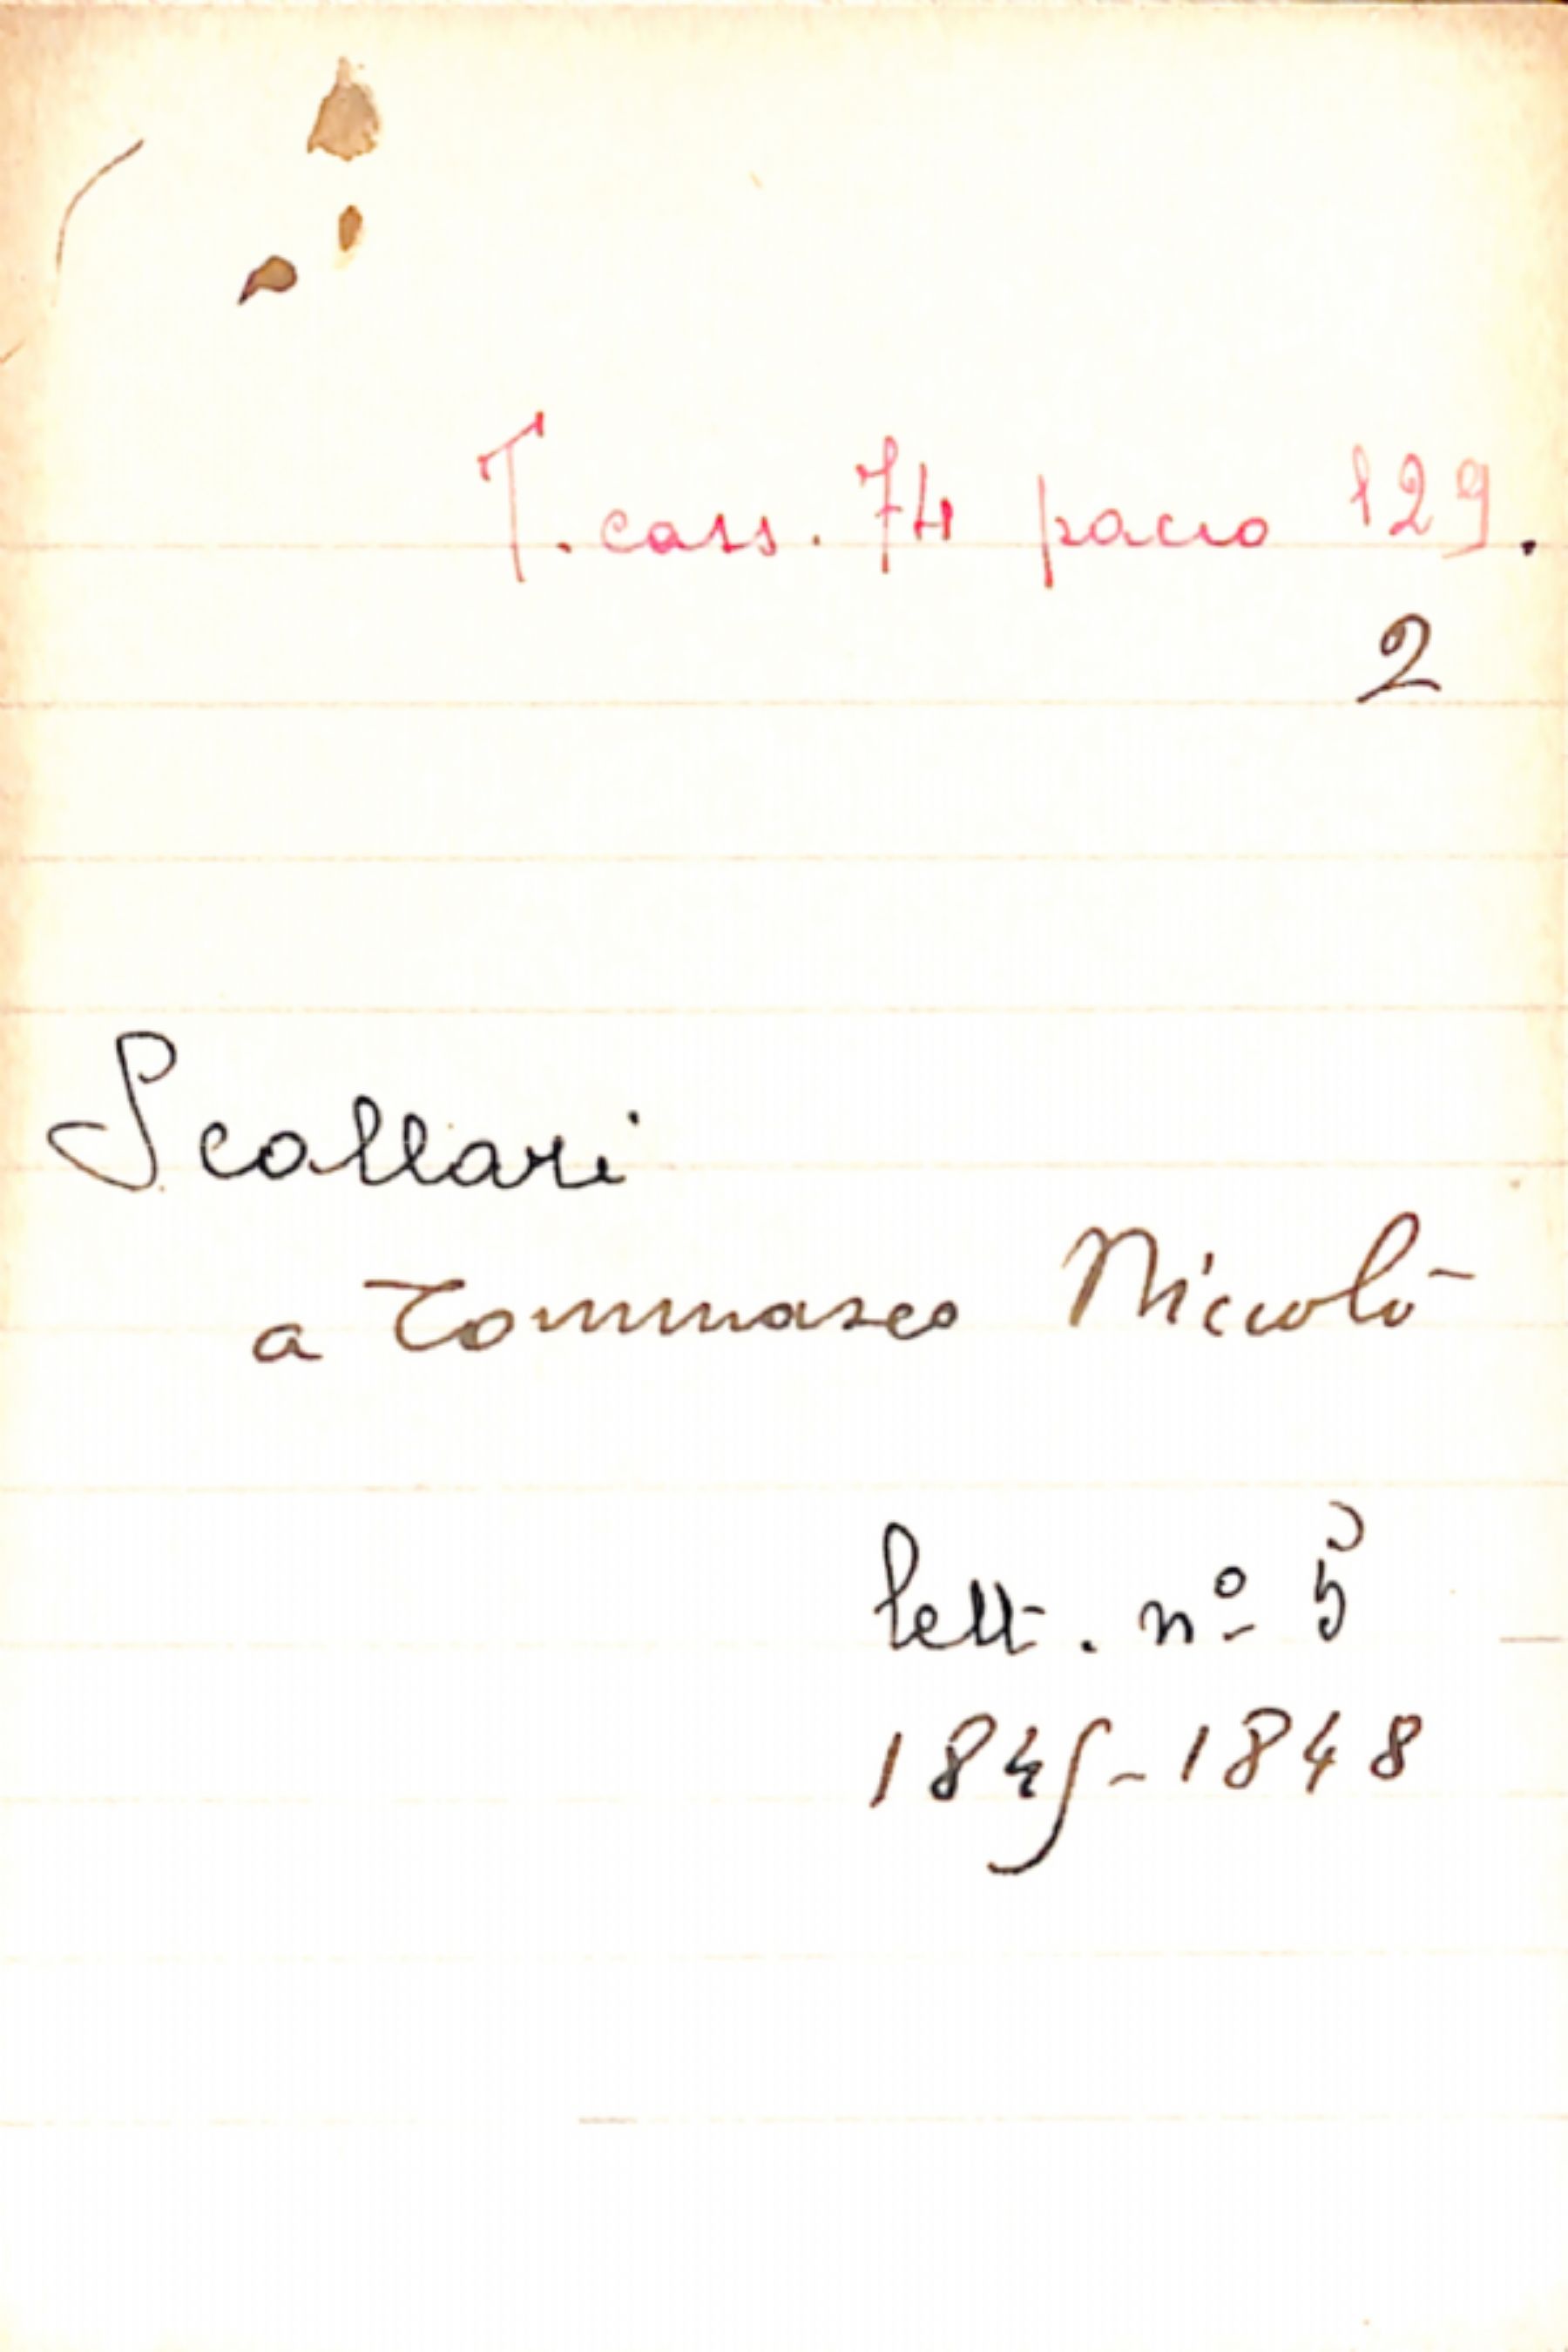 T. cass. 74 pacco 129.
2
Scollari
a Tommaseo Niccolò
lett. nº 5
1845-1848